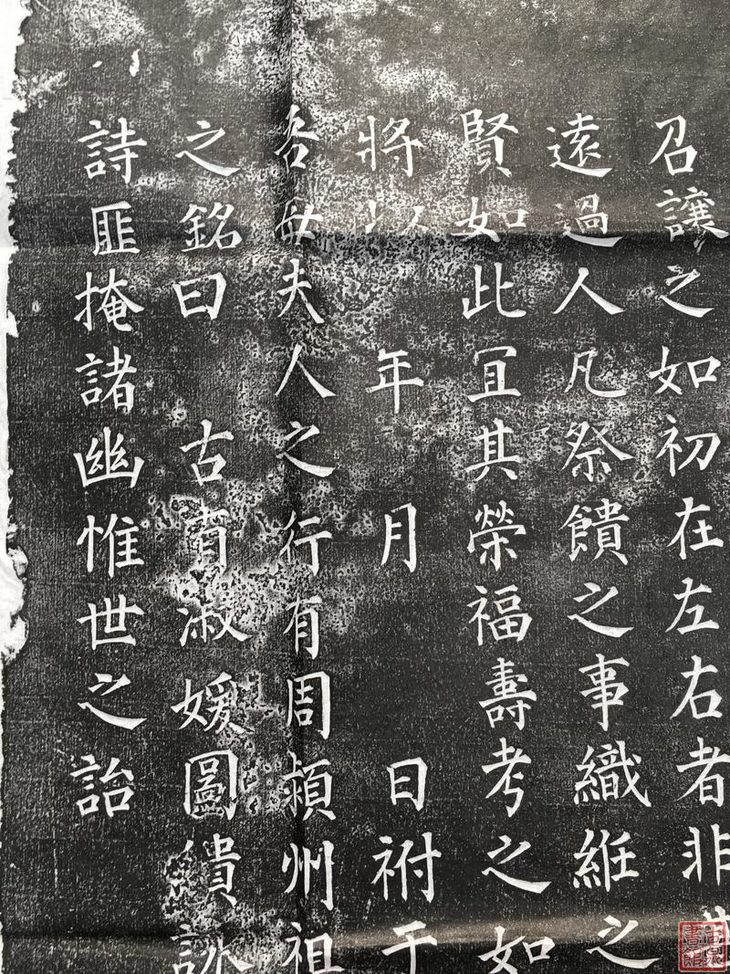 召讓之如初在左右者非
遠過人凡祭饋之事織絍之
賢如此宜其榮福壽考之如
將以 年 月 日祔于
母夫人之行有周潁州祖
之銘曰 古有淑媛圖繢
詩匪掩諸幽惟世之詒